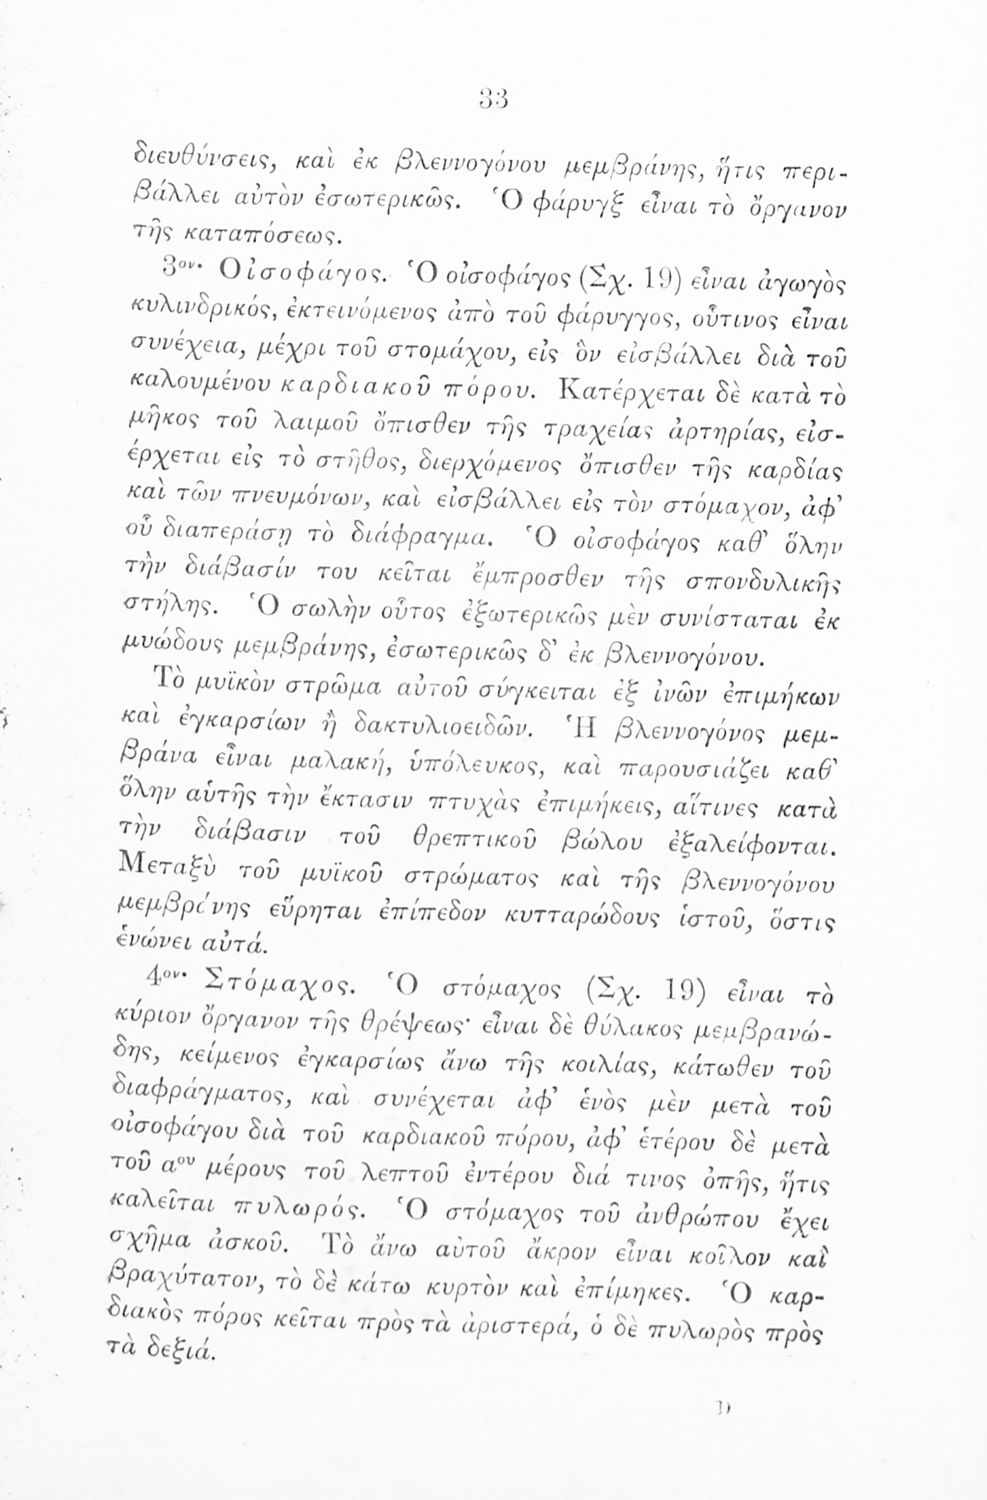 33
διευθύνσεις, καὶ ἐκ βλεννογόνου μεμβράνης, ἥτις περι-
βάλλει αὐτὸν ἐσωτερικῶς. Ὁ φάρυγξ εἶναι τὸ ὄργανον
τῆς καταπόσεως.
3ον· Οἰσοφάγος. Ὁ οἰσοφάγος (Σχ. 19) εἶναι ἀγωγὸς
κυλινδρικός, ἐκτεινόμενος ἀπὸ τοῦ φάρυγγος, οὗτινος εἶναι
συνέχεια, μέχρι τοῦ στομάχου, εἰς ὃν εἰσβάλλει διὰ τοῦ
καλουμένου καρδιακοῦ πόρου. Κατέρχεται δὲ κατὰ τὸ
μῆκος τοῦ λαιμοῦ ὄπισθεν τῆς τραχείας ἀρτηρίας, εἰσ-
έρχεται εἰς τὸ στῆθος, διερχόμενος ὄπισθεν τῆς καρδίας
καὶ τῶν πνευμόνων, καὶ εἰσβάλλει εἰς τὸν στόμαχον, ἀφ’
οὗ διαπεράσῃ τὸ διάφραγμα. Ὁ οἰσοφάγος καθ’ ὅλην
τὴν διάβασίν του κεῖται ἔμπροσθεν τῆς σπονδυλικῆς
στήλης. Ὁ σωλὴν οὗτος ἐξωτερικῶς μὲν συνίσταται ἐκ
μυώδους μεμβράνης, ἐσωτερικῶς δ’ ἐκ βλεννογόνου.
Τὸ μυϊκὸν στρῶμα αὐτοῦ σύγκειται ἐξ ἰνῶν ἐπιμήκων
καὶ ἐγκαρσίων ἢ δακτυλιοειδῶν. Ἡ βλεννογόνος μεμ-
βράνα εἶναι μαλακή, ὑπόλευκος, καὶ παρουσιάζει καθ’
ὅλην αὑτῆς τὴν ἔκτασιν πτυχὰς ἐπιμήκεις, αἵτινες κατὰ
τὴν διάβασιν τοῦ θρεπτικοῦ βώλου ἐξαλείφονται.
Μεταξὺ τοῦ μυϊκοῦ στρώματος καὶ τῆς βλεννογόνου
μεμβράνης εὕρηται ἐπίπεδον κυτταρώδους ἱστοῦ, ὅστις
ἑνώνει αὐτά.
4ον· Στόμαχος. Ὁ στόμαχος (Σχ. 19) εἶναι τὸ
κύριον ὄργανον τῆς θρέψεως· εἶναι δὲ θύλακος μεμβρανώ-
δης, κείμενος ἐγκαρσίως ἄνω τῆς κοιλίας, κάτωθεν τοῦ
διαφράγματος, καὶ συνέχεται ἀφ’ ἑνὸς μὲν μετὰ τοῦ
οἰσοφάγου διὰ τοῦ καρδιακοῦ πόρου, ἀφ’ ἑτέρου δὲ μετὰ
τοῦ αου μέρους τοῦ λεπτοῦ ἐντέρου διά τινος ὀπῆς, ἥτις
καλεῖται πυλωρός. Ὁ στόμαχος τοῦ ἀνθρώπου ἔχει
σχῆμα ἀσκοῦ. Τὸ ἄνω αὐτοῦ ἄκρον εἶναι κοῖλον καὶ
βραχύτατον, τὸ δὲ κάτω κυρτὸν καὶ ἐπίμηκες. Ὁ καρ-
διακὸς πόρος κεῖται πρὸς τὰ ἀριστερά, ὁ δὲ πυλωρὸς πρὸς
τὰ δεξιά.
D